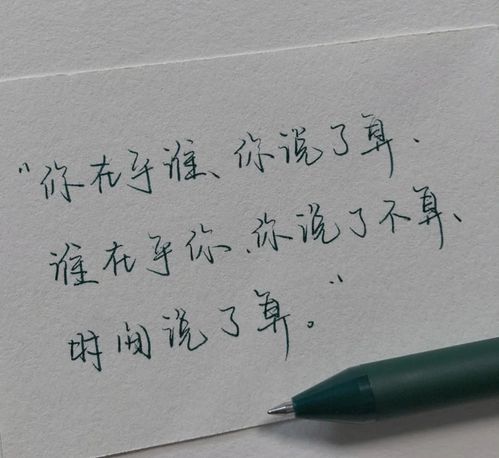 “你在乎谁、你说了算、
谁在乎你、你说了不算、
时间说了算。”